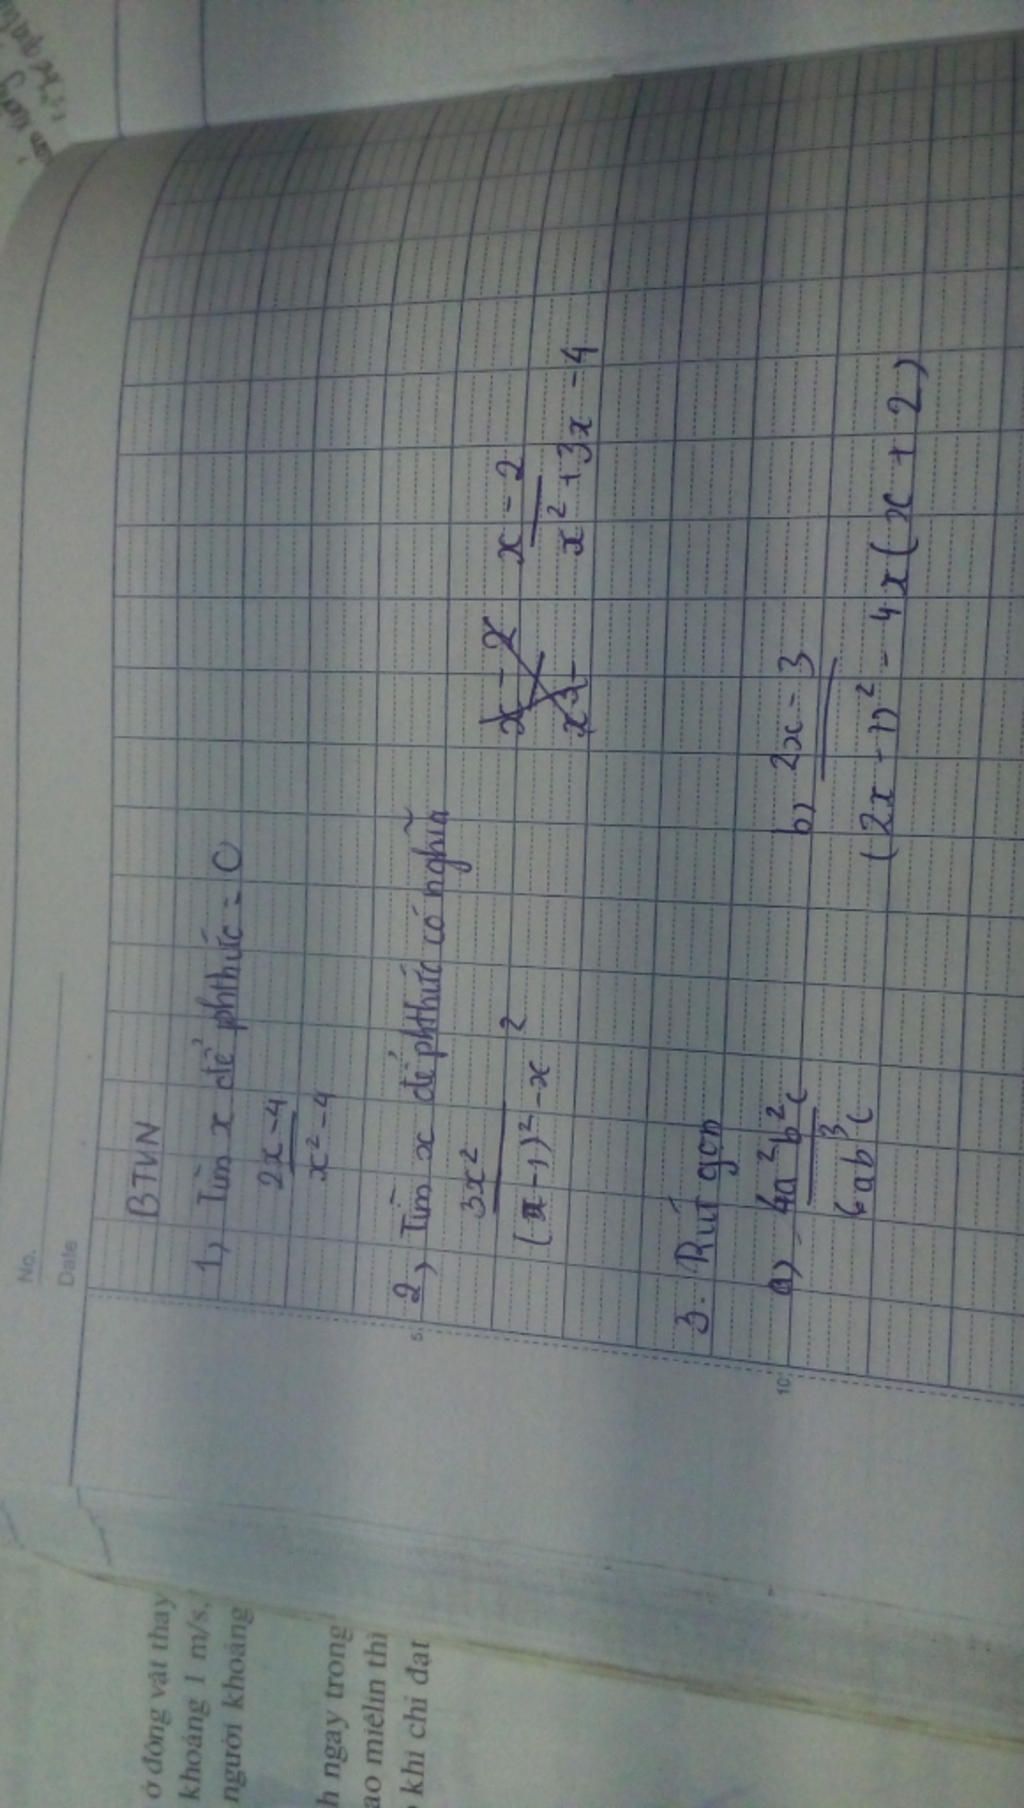 No.
Date
BTVN
1, Tìm x để phthức = 0
2x - 4
x² - 4
2, Tìm x để phthức có nghĩa
3x²
(x - 1)² - x²
x - 2
x² + 3x - 4
3. Rút gọn
a) 4a²b²c
6ab³c
b) 2x - 3
(2x - 1)² - 4x(x + 2)
5
10
ở động vật thay
khoảng 1 m/s,
người khoảng
h ngay trong
ao miêlin thì
khi chỉ đạt